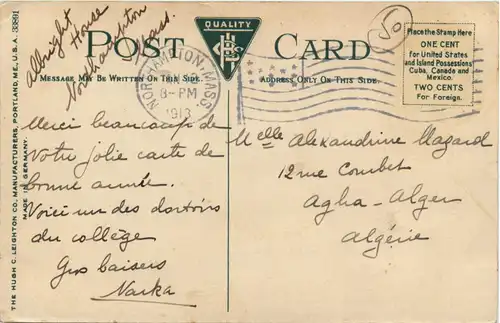 Albright House
Northampton
Mass.
POST CARD
QUALITY
50
MESSAGE MAY BE WRITTEN ON THIS SIDE.
ADDRESS ONLY ON THIS SIDE
Place the Stamp Here
ONE CENT
for United States
and Island Possessions
Cuba, Canada and
Mexico.
TWO CENTS
For Foreign.
NORTHAMPTON, MASS.
8-PM
1913
Merci beaucoup de
votre jolie carte de
bonne année.
Voici un des dortoirs
du collège
Gros baisers
Narka
Melle Alexandrine Mazard
12 rue Combet
Agha-Alger
Algérie
THE HUGH C. LEIGHTON CO., MANUFACTURERS, PORTLAND, ME., U.S.A.
MADE IN GERMANY.